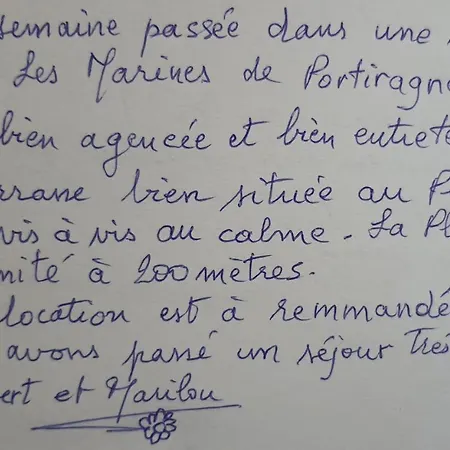 semaine passée dans une
Les Marines de Portiragn
bien agencée et bien entrete
rrane bien située au P
vis à vis au calme. La Pl
mité à 200 mètres.
location est à remmandé
avons passé un séjour Très
ert et Marilou